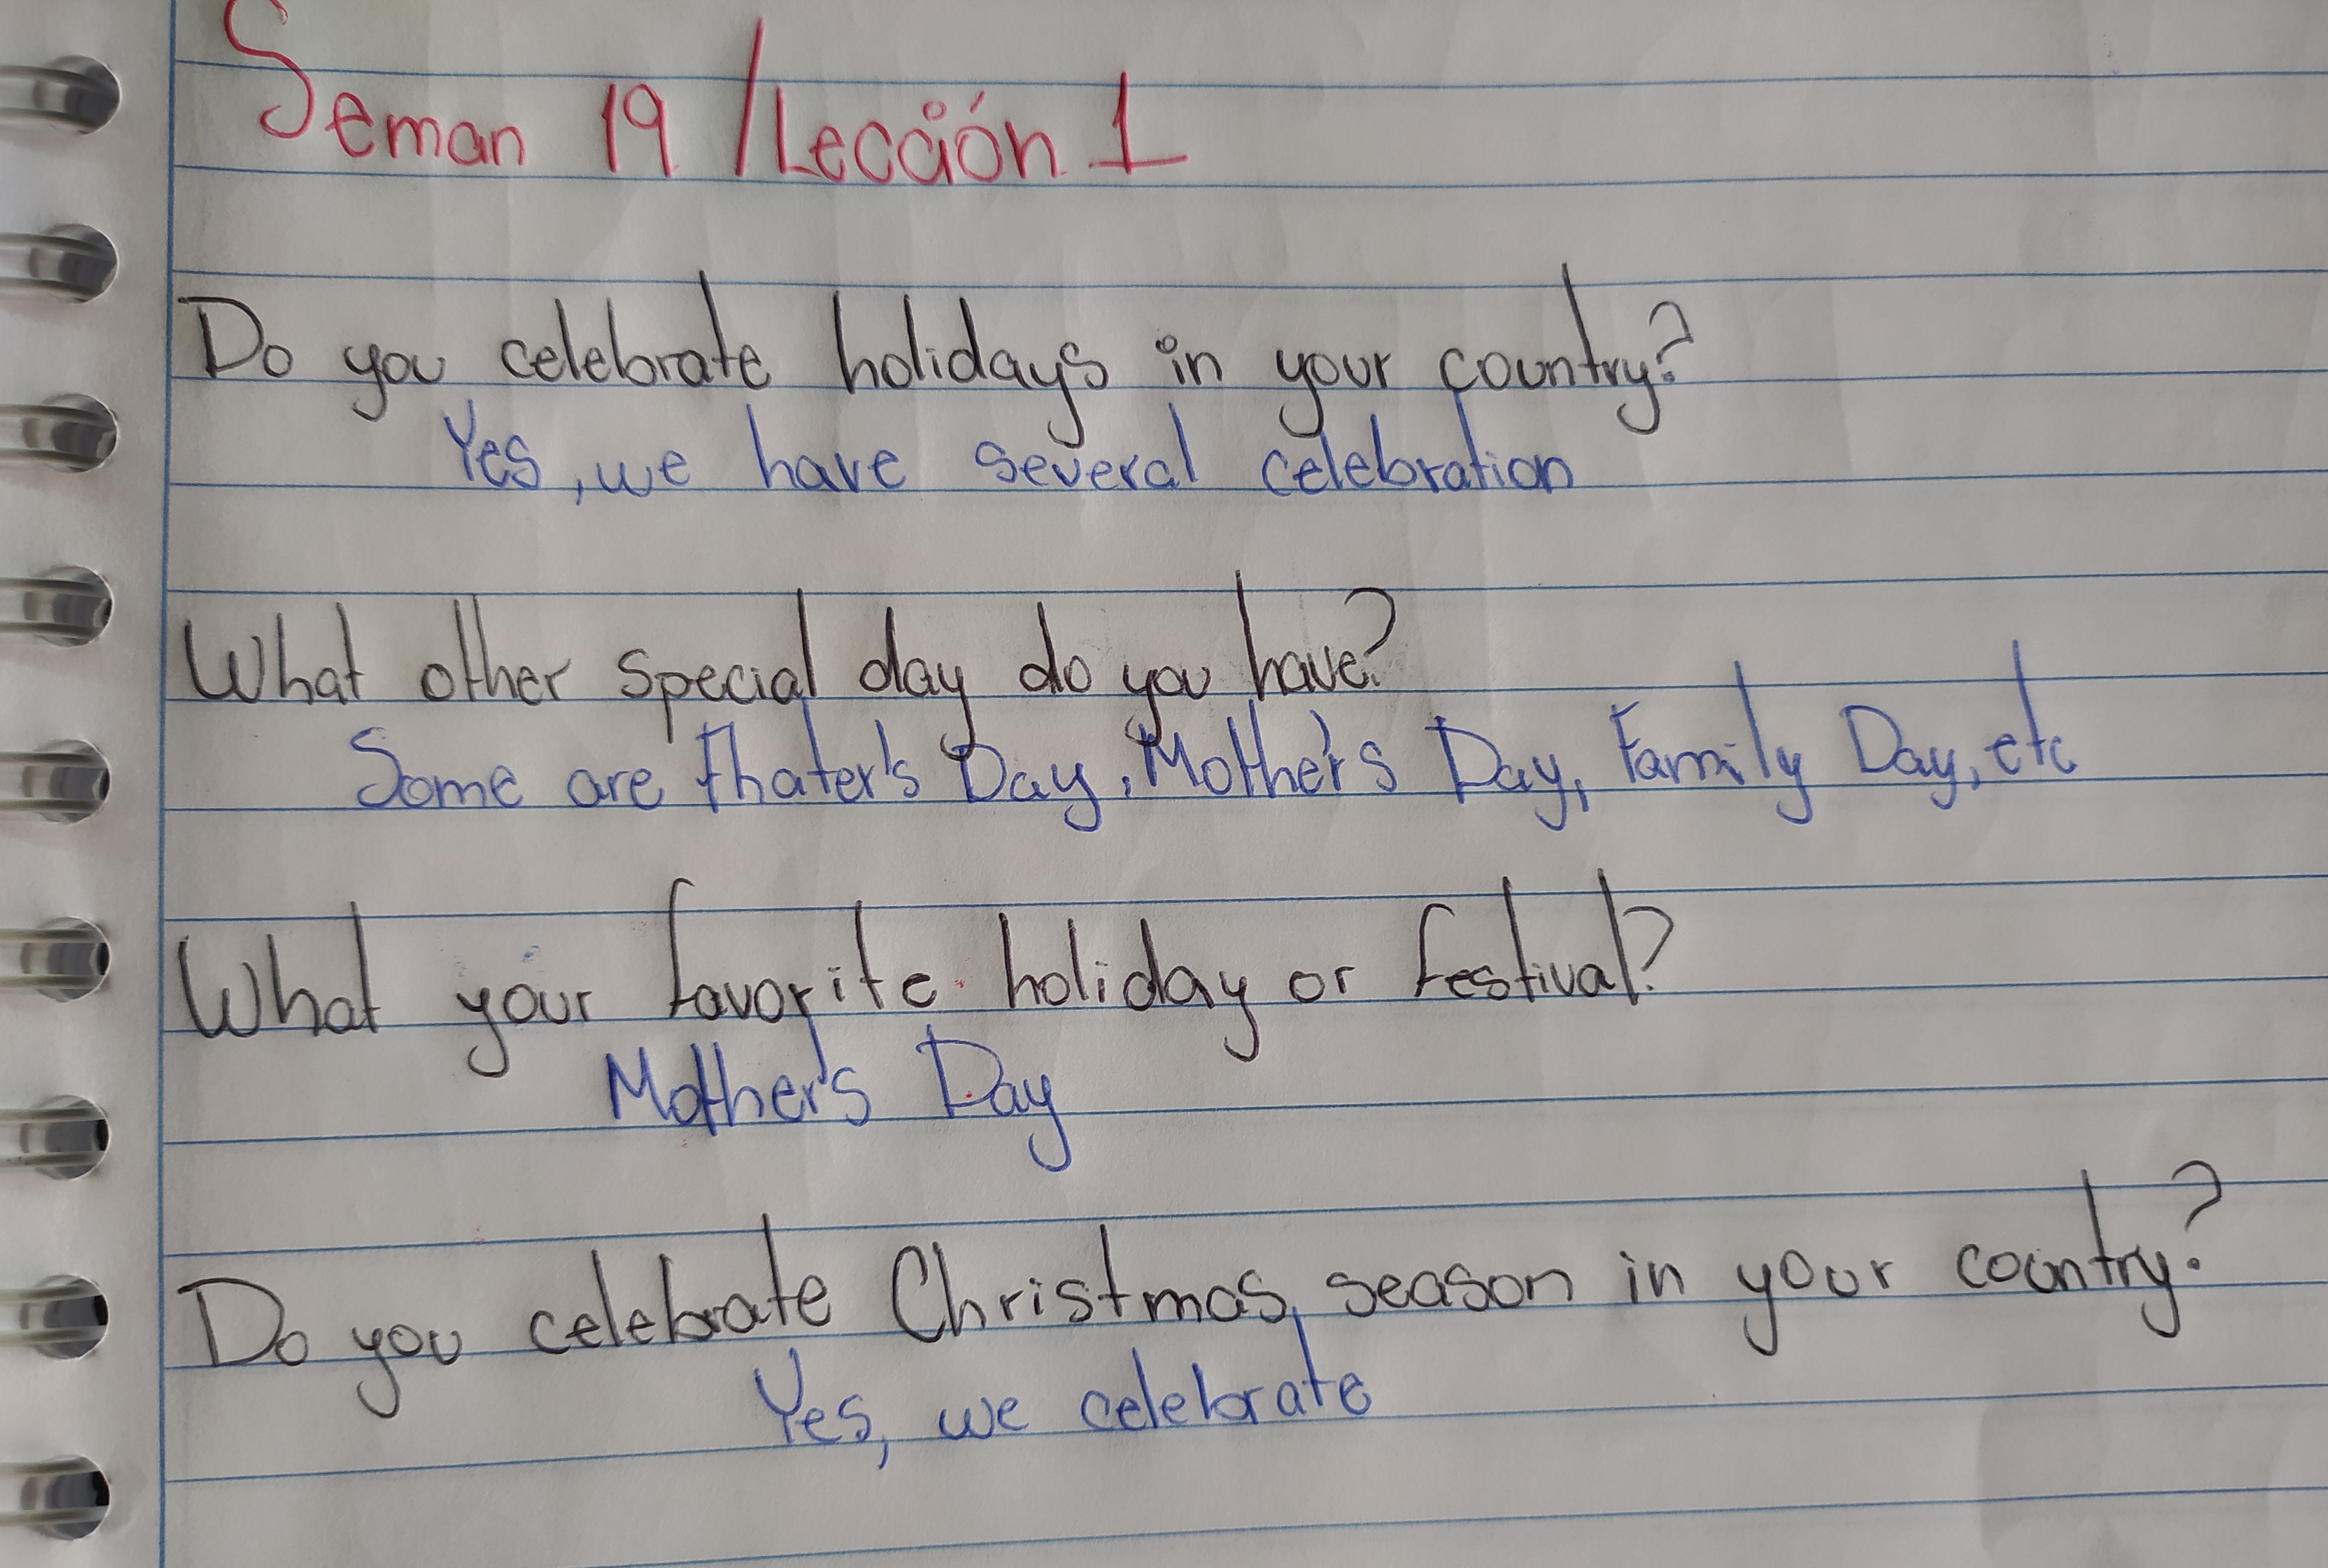 Seman 19 / Lección 1
Do you celebrate holidays in your country?
Yes, we have several celebration
What other special day do you have?
Some are fhater's Day, Mother's Day, Family Day, etc
What your favorite holiday or festival?
Mother's Day
Do you celebrate Christmas season in your country?
Yes, we celebrate